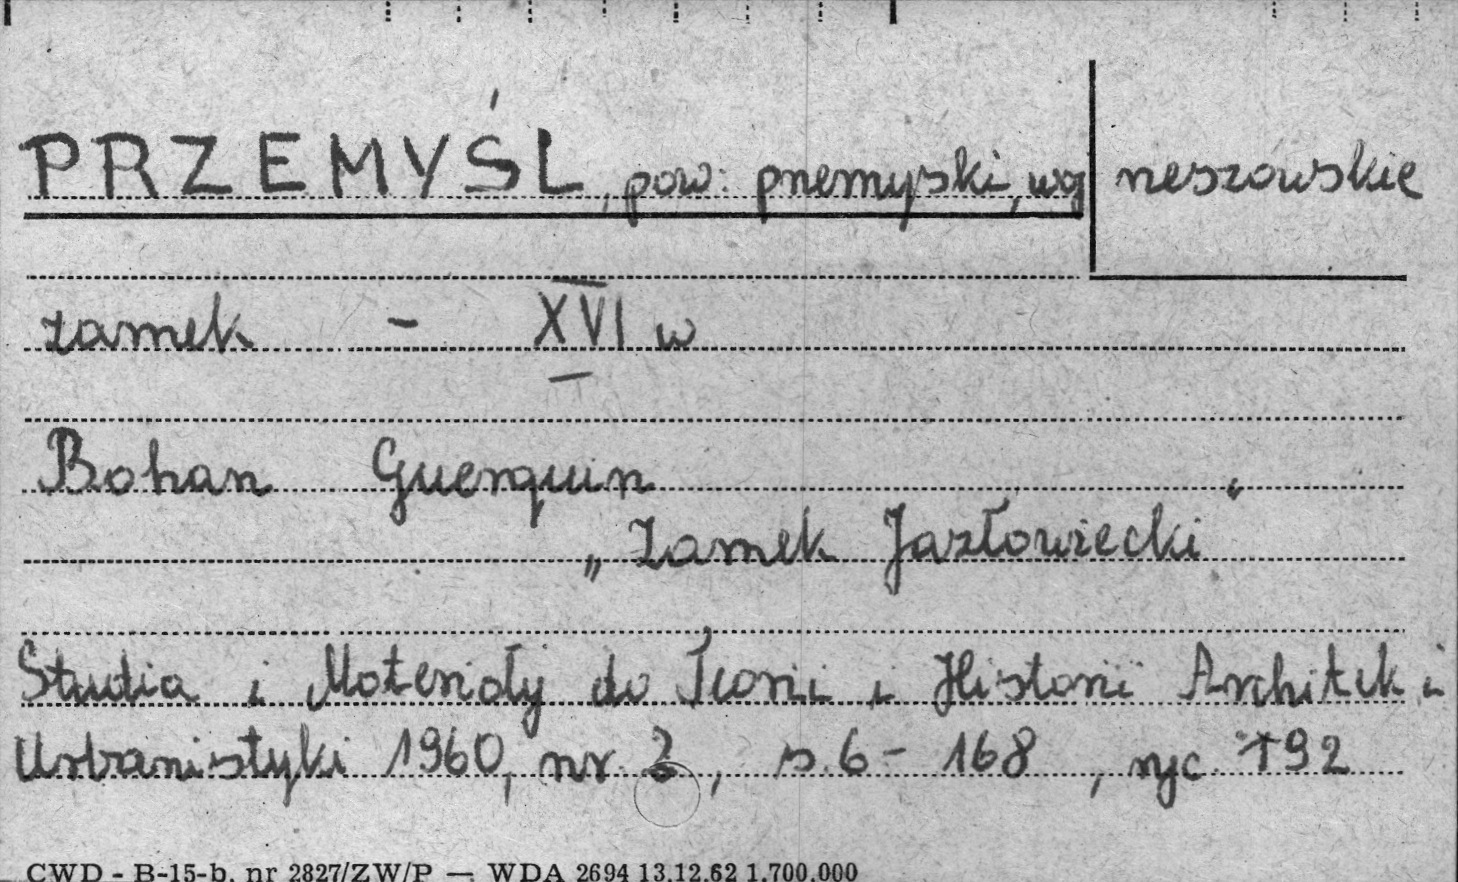 PRZEMYŚL, pow. przemyski, wg rzeszowskie
zamek - XVI w
Bohdan Guerquin
„Zamek Jazłowiecki"
Studia i Materiały do Teorii i Historii Architek i
Urbanistyki 1960, nr 2, s. 6 - 168, ryc 192
CWD - B-15-b. nr 2827/ZW/P — WDA 2694 13.12.62 1.700.000